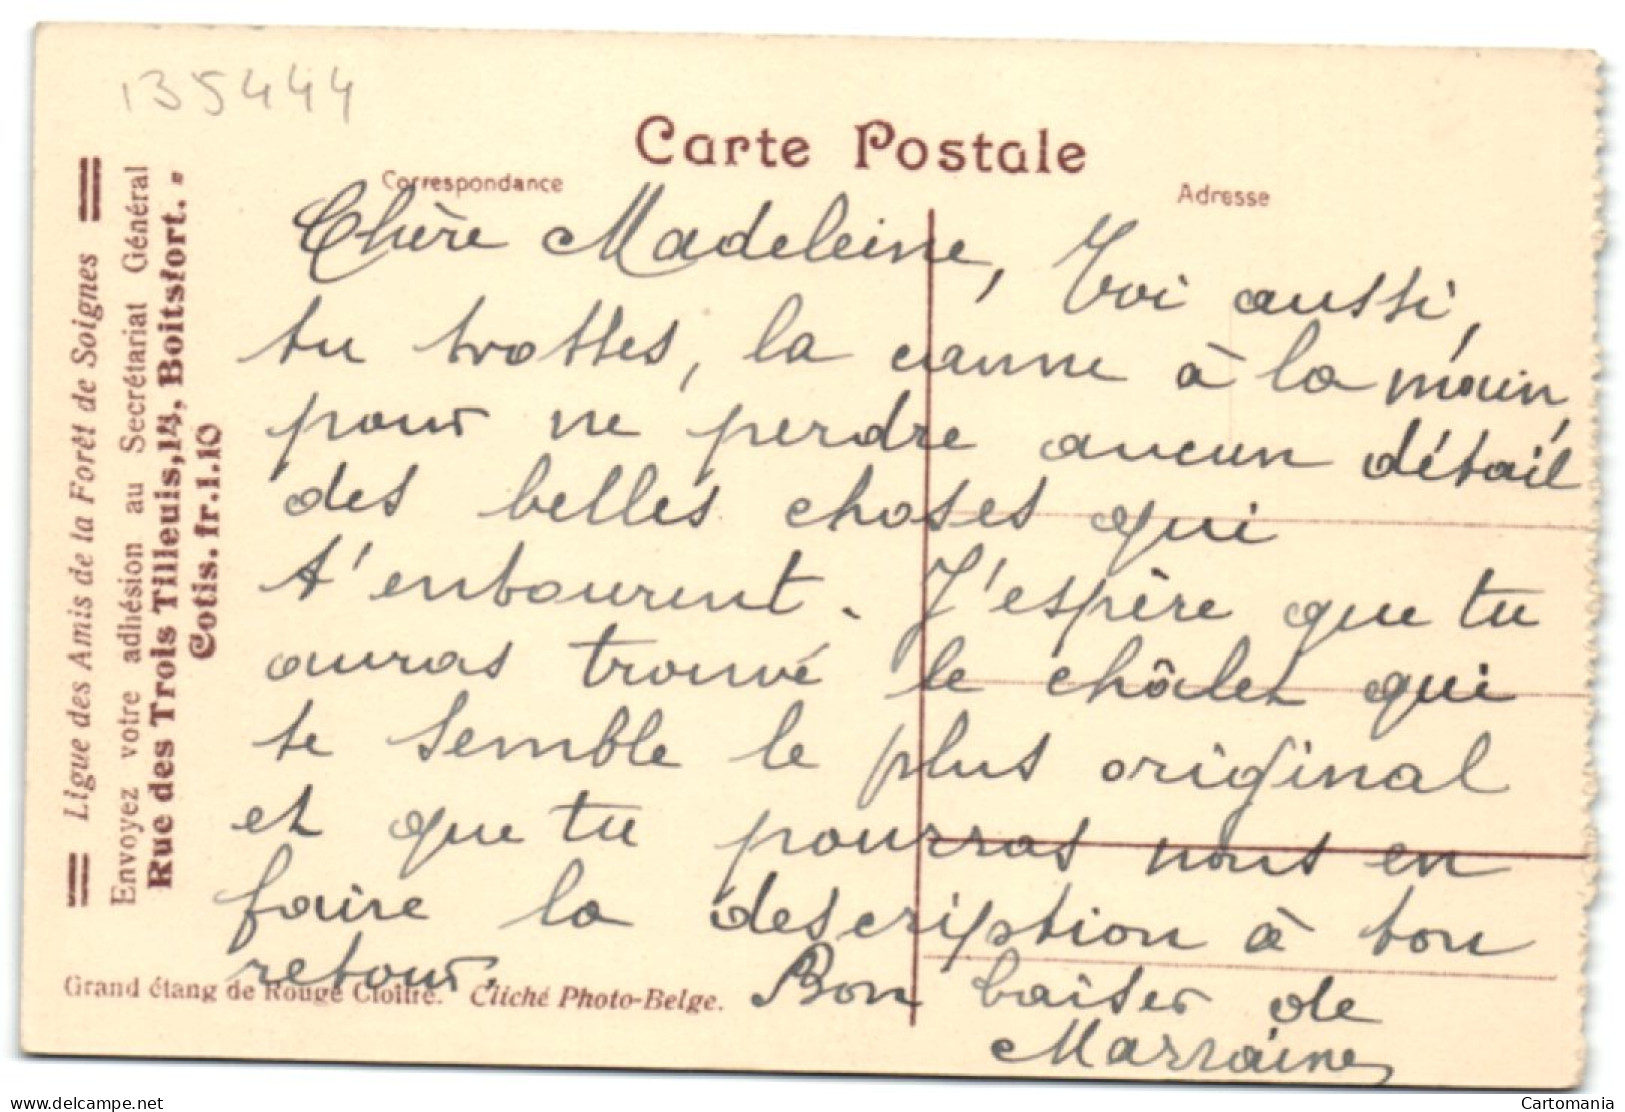 135444
Carte Postale
Correspondance
Adresse
Ligue des Amis de la Forêt de Soignes
Envoyez votre adhésion au Secrétariat Général
Rue des Trois Tilleuls, 14, Boitsfort. =
Cotis. fr. 1.10
Chère Madeleine, Toi aussi,
tu trottes, la canne à la main,
pour ne perdre aucun détail
des belles choses qui
t'entourent. J'espère que tu
auras trouvé le châlet qui
te semble le plus original
et que tu pourras nous en
faire la description à ton
retour,
Bon baiser de
Marraine
Grand étang de Rouge Cloître. Cliché Photo-Belge.
delcampe.net
Cartomania